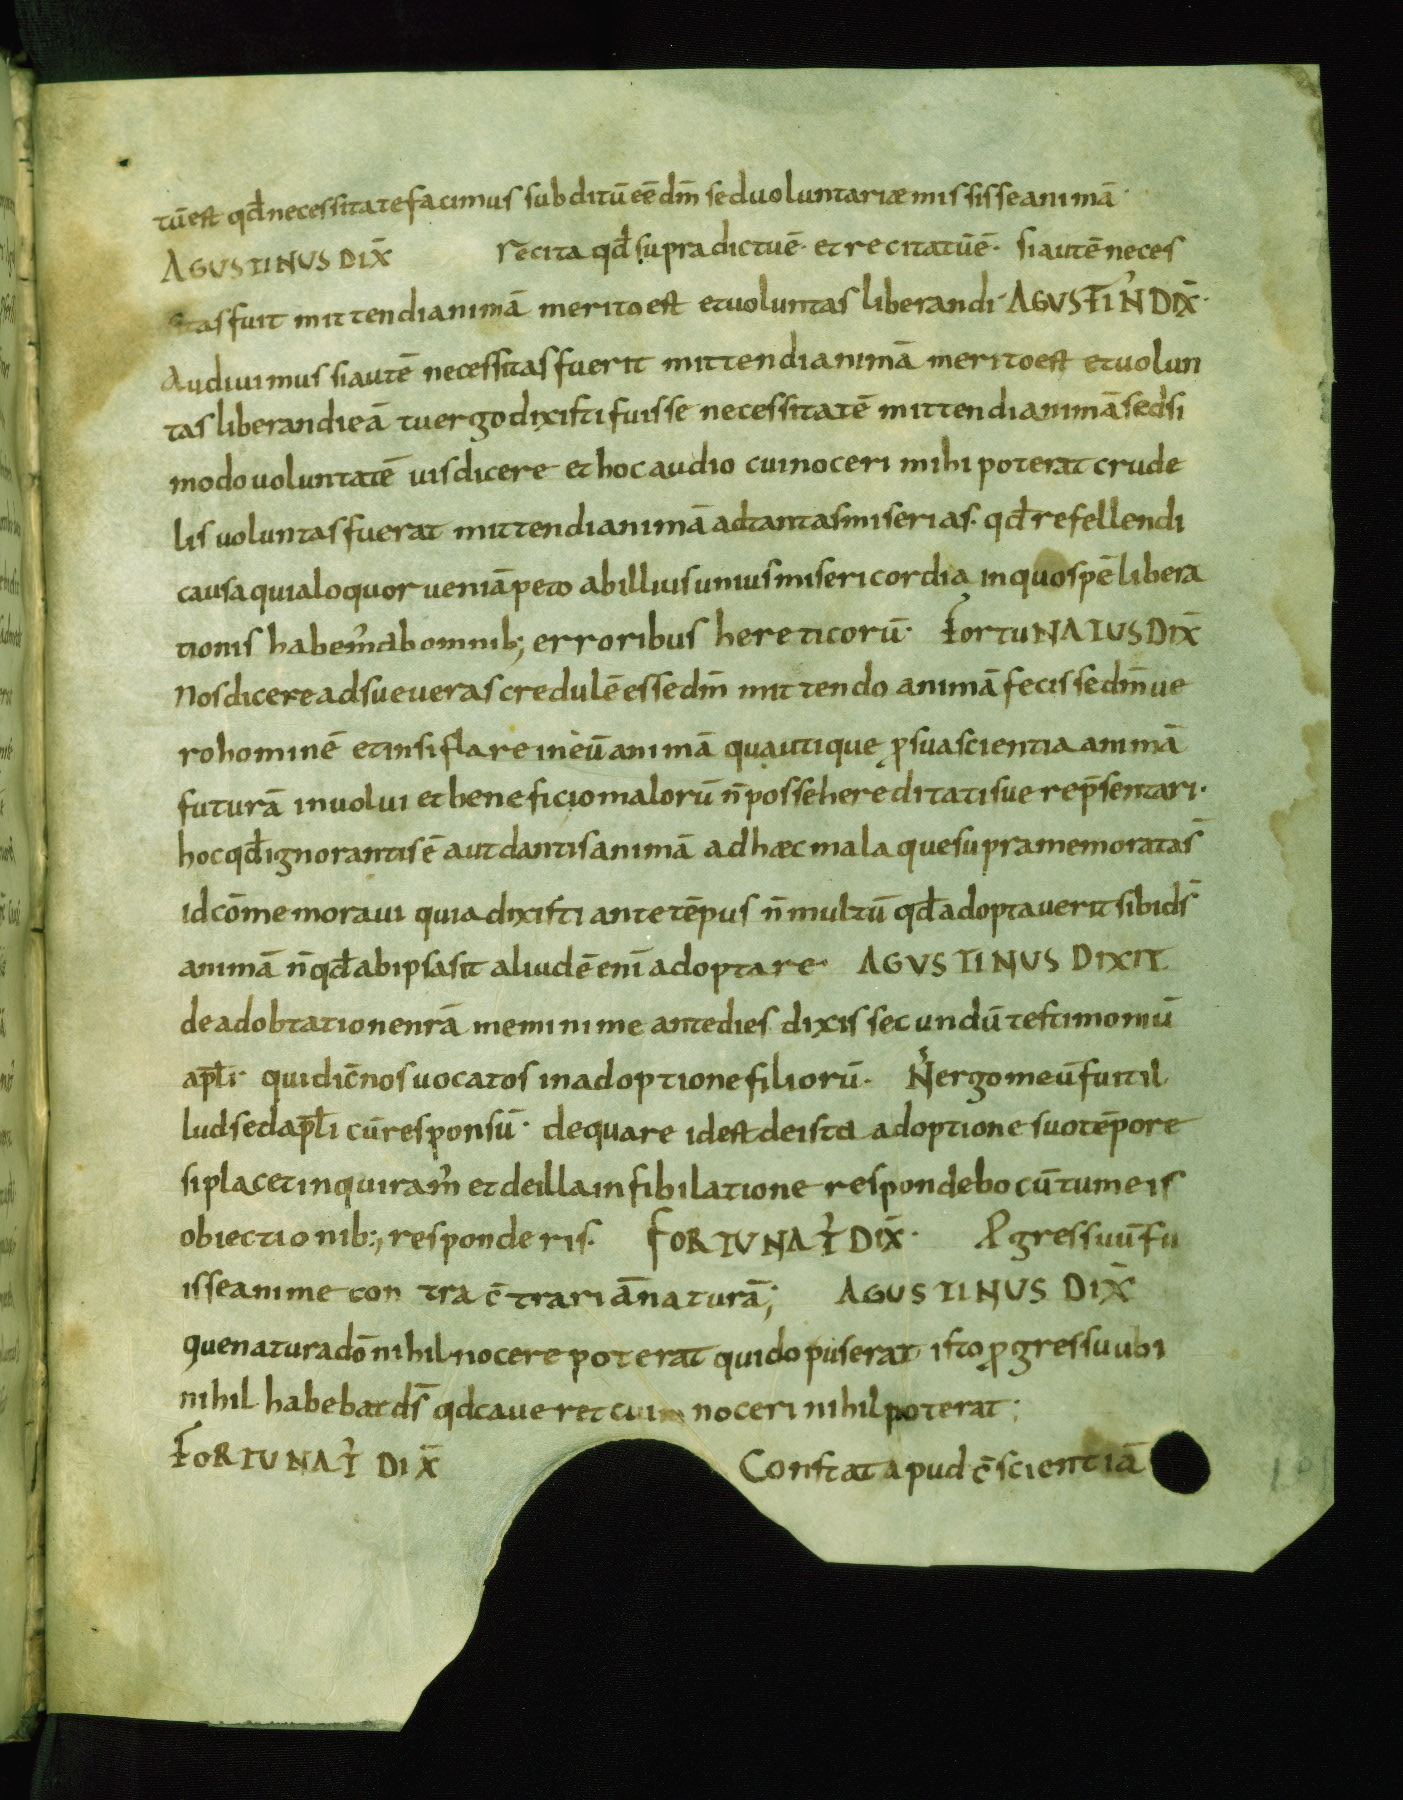 tū est qđ necessitate facimus subditū eē dm̄ sed uoluntariæ mississe animā·
AGUSTINUS DIX̄ rēcita qđ supra dictuē· et recitatūē· si autē neces
sitas fuit mittendi animā merito est et uoluntas liberandi· AGUSTIN᾿ DIX̄·
Audiuimus si autē necessitas fuerit mittendi animā merito est et uolun
tas liberandi eā tu ergo dixisti fuisse necessitatē mittendi animā sed si
modo uoluntatē uis dicere et hoc audio cui noceri mihi poterat crude
lis uoluntas fuerat mittendi animā ad tantas miserias· qđ refellendi
causa quia loquor ueniā peto ab illius unius misericordia in quo spē libera
tionis habem᾿ ab omnib; erroribus hereticorū· FORTUNATUS DIX̄
Nos dicere adsueueras credulē esse dm̄ mittendo animā fecisse dm̄ ue
ro hominē et insiflare in eū animā qua utique ꝓ sua scientia animā
futurā inuolui et beneficio malorū n̄ posse hereditati sue rep̄sentari·
hoc qđ ignorantis ē aut dantis animā ad hæc mala que supra memoratas̄
id cōmemoraui quia dixisti ante tēpus n̄ multū qđ adoptauerit sibi ds̄
animā n̄ qđ ab ipsa sit aliud ē enī adoptare· AGUSTINUS DIXIT
de adobtatione nrā memini me ante dies dixis secundū testimoniū
apłi· qui dic̄ nos uocatos in adoptione filiorū· N᾿ ergo meū fuit il
lud sed apłi cū responsū· de quare id est de ista adoptione suo tēpore
si placet inquiram᾿ et de illa infibilatione respondebo cū tu meis
obiectionib; responderis· FORTUNAT᾿ DIX̄· Ꝓgressuū fu
isse anime contra c̄trariā naturā; AGUSTINUS DIX̄
que natura dō nihil nocere poterat quid opus erat isto ꝓgressu ubi
nihil habebat ds̄ qđ caueret cui noceri nihil poterat;
FORTUNAT᾿ DIX̄ Constat apud c̄scientiā